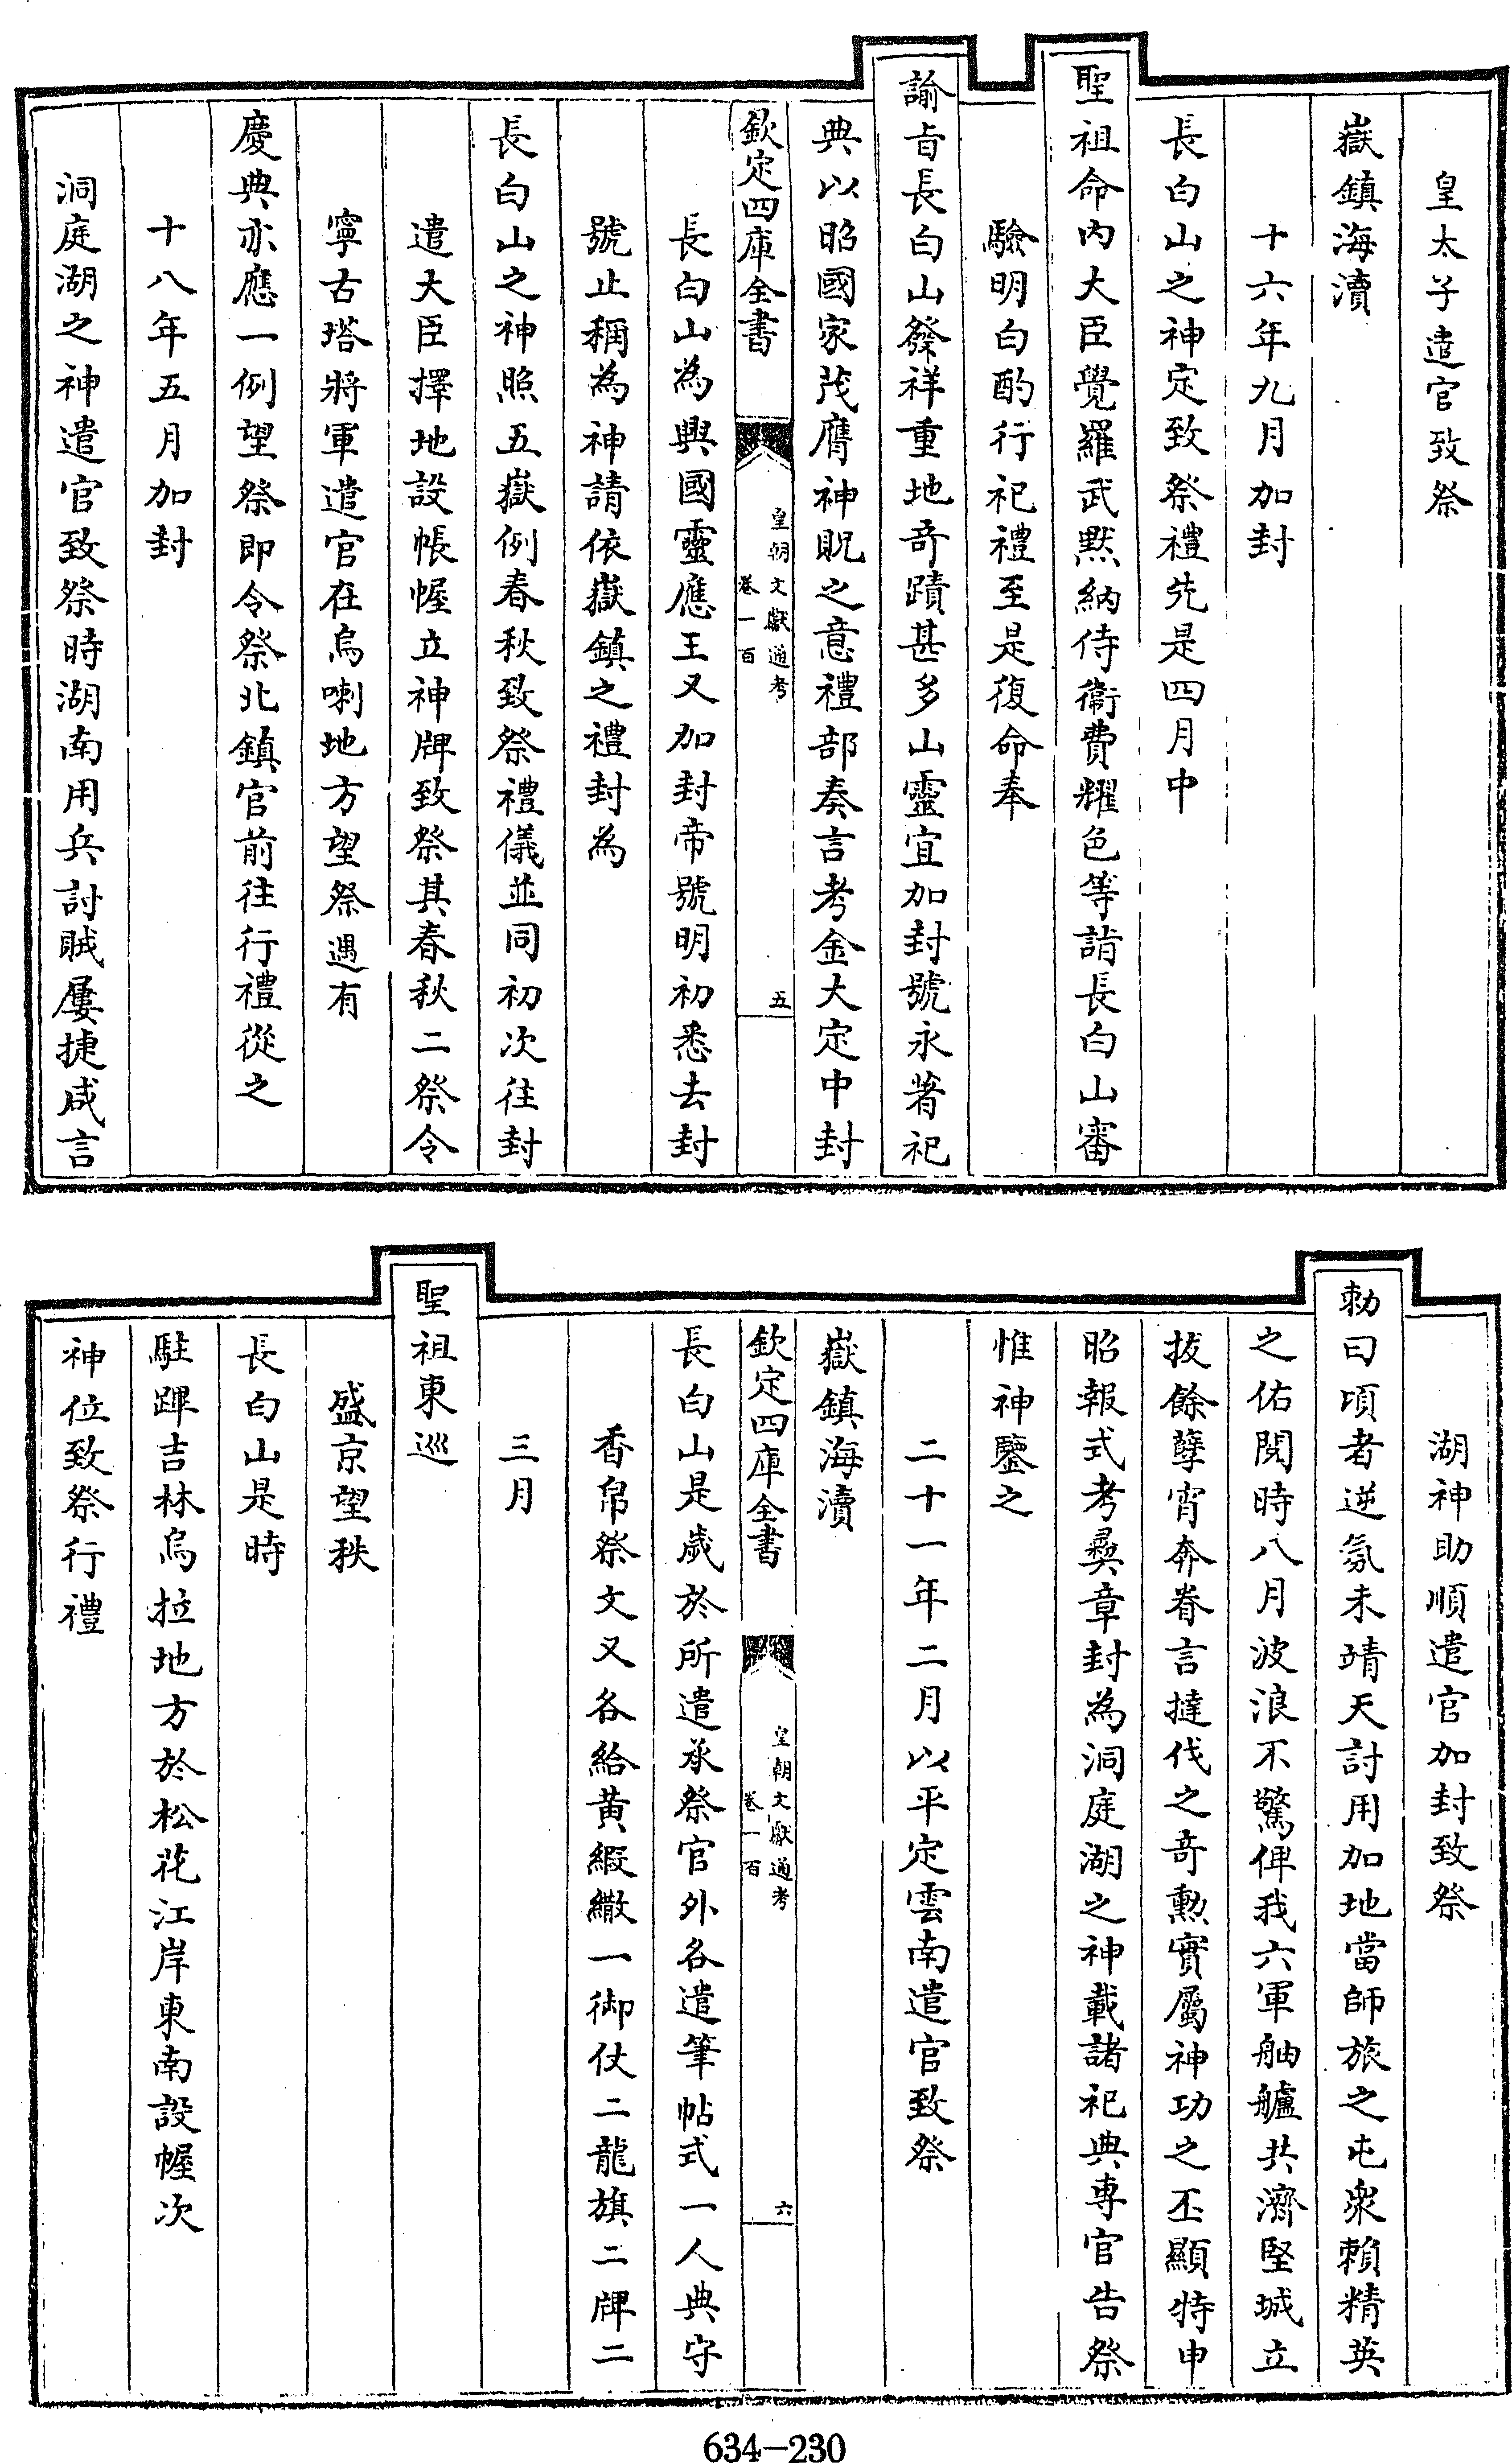 皇太子遣官致祭
嶽鎮海瀆
十六年九月加封
長白山之神定致祭禮先是四月中
聖祖命内大臣覺羅武黙納侍衞費耀色等詣長白山審
驗明白酌行祀禮至是復命奉
諭旨長白山發祥重地奇蹟甚多山靈宜加封號永著祀
典以昭國家茂膺神貺之意禮部奏言考金大定中封
欽定四庫全書
皇朝文獻通考
卷一百
五
長白山為興國靈應王又加封帝號明初悉去封
號止稱為神請依嶽鎮之禮封為
長白山之神照五嶽例春秋致祭禮儀並同初次往封
遣大臣擇地設帳幄立神牌致祭其春秋二祭令
寧古塔將軍遣官在烏喇地方望祭遇有
慶典亦應一例望祭即令祭北鎮官前往行禮從之
十八年五月加封
洞庭湖之神遣官致祭時湖南用兵討賊屢捷咸言
湖神助順遣官加封致祭
勅曰頃者逆氛未靖天討用加地當師旅之屯衆賴精英
之佑閱時八月波浪不驚俾我六軍舳艫共濟堅城立
拔餘孽宵奔眷言撻伐之奇勲實屬神功之丕顯特申
昭報式考彝章封為洞庭湖之神載諸祀典專官告祭
惟神鑒之
二十一年二月以平定雲南遣官致祭
嶽鎮海瀆
欽定四庫全書
皇朝文獻通考
卷一百
六
長白山是歲於所遣承祭官外各遣筆帖式一人典守
香帛祭文又各給黃緞繖一御仗二龍旗二牌二
三月
聖祖東巡
盛京望秩
長白山是時
駐蹕吉林烏拉地方於松花江岸東南設幄次
神位致祭行禮
634-230